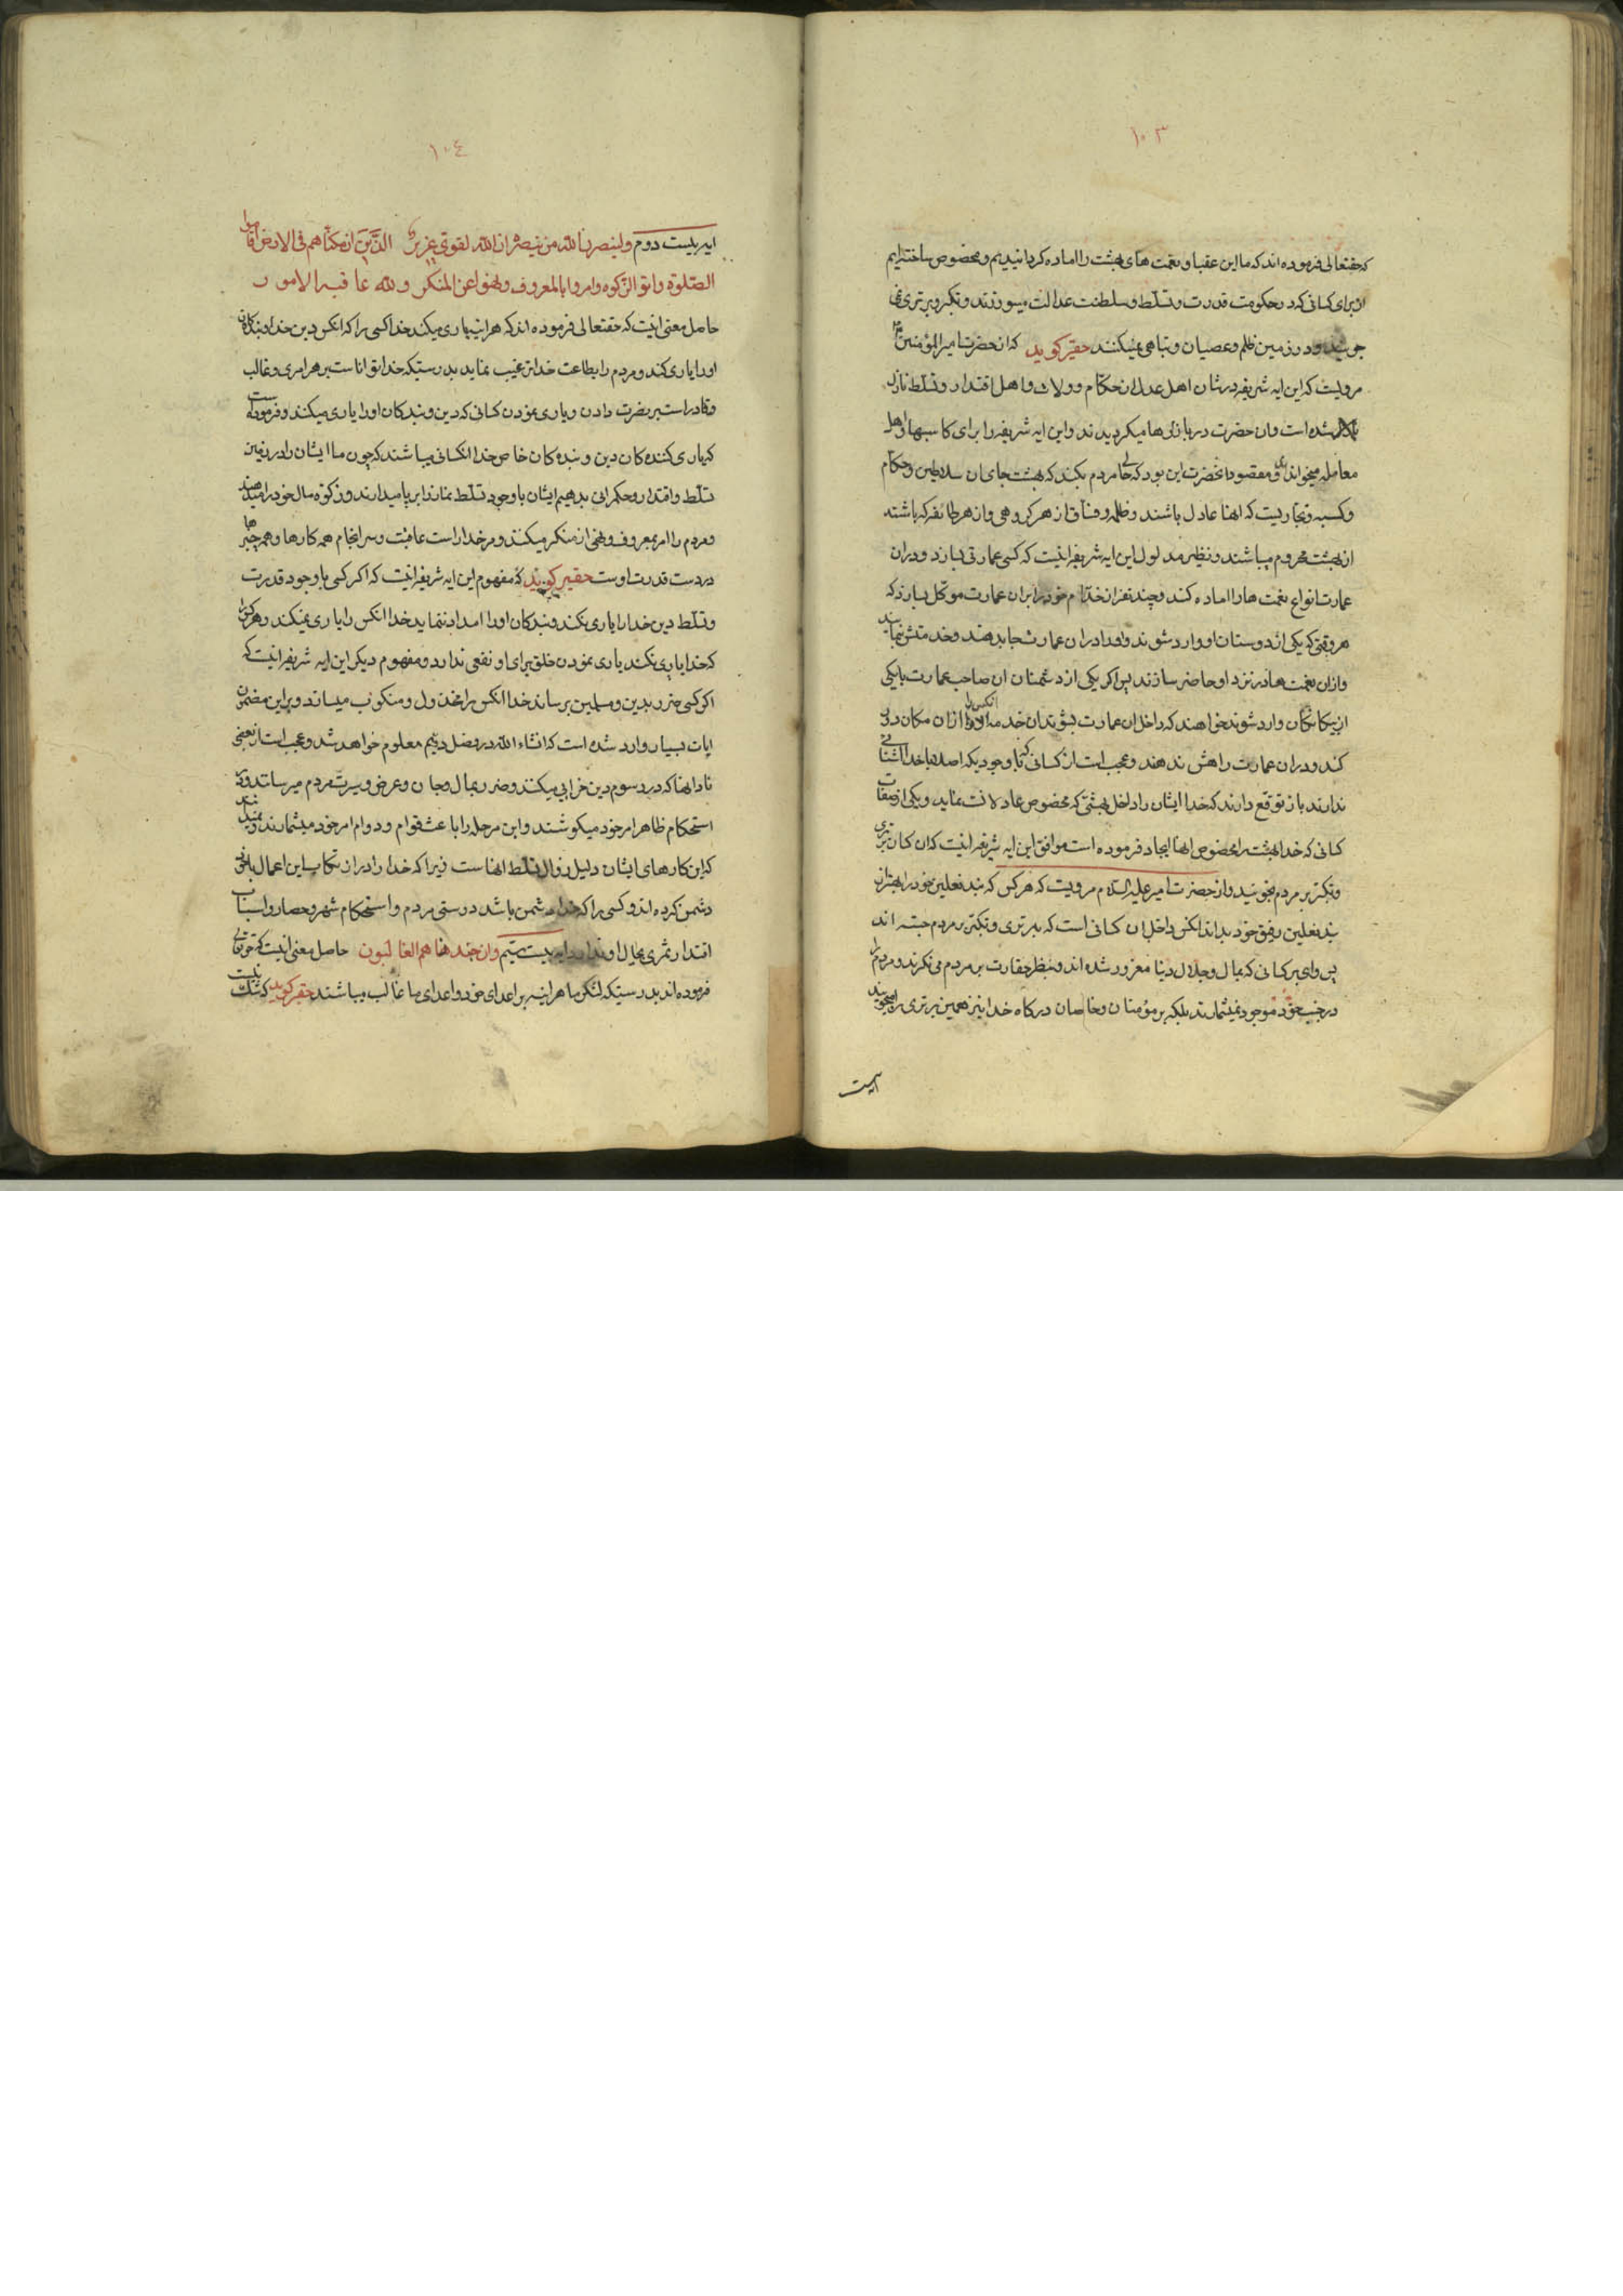 ١٠٣
که حقتعالی فرموده اند که ما این عقبا و نعمت های بهشت را اماده کردانیدیم و مخصوص ساخته ایم
از برای کسانی که در حکومت قدرت و تسلّط و سلطنت عدالت میورزند و تکبّر و برتری نمی
جویند و در زمین ظلم و عصیان و تباهی نمیکنند حقیر کوید که از حضرت امیر المؤمنین
مرویست که این ایه شریفه در شان اهل عدل از حکّام و ولات و اهل اقتدار و تسلّط نازل
شده است و ان حضرت در بازارها میکردیدند و این ایه شریفه را برای کاسبها و اهل
معامله میخواندند و مقصود انحضرت این بود که حالی مردم بکند که بهشت جای ان سلاطین و حکّام
و کسبه و تجاریست که انها عادل باشند و ظلمه و فسّاق از هر کروهی و از هر طائفه که باشند
از بهشت محروم میباشند و نظیر مدلول این ایه شریفه اینست که کسی عمارتی بسازد و در ان
عمارت انواع نعمت ها را اماده کند و چند نفر از خدّام خود را بر ان عمارت موکّل سازد که
هر وقتی که یکی از دوستان او وارد شوند و او را در ان عمارت جا بدهند و خدمتش نمایند
و از ان نعمت ها در نزد او حاضر سازند پس اکر یکی از دشمنان ان صاحب عمارت یا یکی
از بیکانکان وارد شوند و خواهند که داخل ان عمارت بشوند ان خدمه انکس را از ان مکان دور
کند و در ان عمارت راهش ندهند و عجب است از کسانی که با وجودیکه اصلا با خدا اشنائی
ندارند باز توقع دارند که خدا ایشان را داخل بهشتی که مخصوص عادلانست نماید و یکی از صفات
کسانی که خدا بهشت را مخصوص انها ایجاد فرموده است موافق این ایه شریفه اینست که ان کسان برتری
و تکبّر بر مردم نجویند و از حضرت امیر علیه السلام مرویست که هر کس که بند نعلین خود را بهتر از
بند نعلین رفیق خود بداند انکس داخل ان کسانی است که برتری و تکبّر بر مردم جسته اند
پس وای بر کسانی که بمال و جلال دنیا مغرور شده اند و بنظر حقارت بر مردم می نکرند و مردم را
در جنب خود موجود نمیشمارند بلکه بر مؤمنان و خاصان درکاه خدا نیز همین برتری را میجویند
ایه بیست
١٠٤
ایه بیست دوم ولینصرن الله من ینصره ان الله لقوی عزیز الذین ان مکنّاهم فی الارض اقاموا
الصّلوة واتو الزّکوه وامروا بالمعروف ونهوا عن المنکر ولله عاقبه الامور
حاصل معنی اینست که حقتعالی فرموده اند که هر اینه یاری میکند خدا کسی را که انکس دین خدا و بندکان
او را یاری کند و مردم را بطاعت خدا ترغیب نماید بدرستیکه خدا توانا است بر هر امری و غالب
و قادر است بر نصرت دادن و یاری نمودن کسانی که دین و بندکان او را یاری میکنند و فرموده است
که یاری کننده کان دین و بنده کان خاص خدا انکسانی میباشند که چون ما ایشان را در زمین
تسلّط و اقتدار و حکمرانی بدهیم ایشان با وجود تسلّط نماز را بر پا میدارند و زکوة مال خود را میدهند
و مردم را امر بمعروف و نهی از منکر میکنند و مر خدا راست عاقبت و سر انجام همه کارها و همه چیزها
در دست قدرت اوست حقیر کوید که مفهوم این ایه شریفه اینست که اکر کسی با وجود قدرت
و تسلّط دین خدا را یاری نکند و بندکان او را امداد ننماید خدا انکس را یاری نمیکند و هر کس را
که خدا یاری نکند یاری نمودن خلق برای او نفعی ندارد و مفهوم دیکر این ایه شریفه اینست که
اکر کسی ضرر بدین و مسلمین برساند خدا انکس را مخذول و منکوب میسازد و بر این مضمون
ایات بسیار وارد شده است که انشاء الله در فصل دویم معلوم خواهد شد و عجب است از بعضی
نادانها که در رسوم دین خرابی میکنند و ضرر بمال و جان و عرض و سیرت مردم میرسانند و در
استحکام ظاهر امر خود میکوشند و این مرحله را باعث قوام و دوام امر خود میشمارند و نمیدانند
که این کارهای ایشان دلیل زوال تسلّط انهاست زیرا که خدا را در ارتکاب این اعمال با خود
دشمن کرده اند و کسی را که خدا دشمن باشد درستی مردم و استحکام شهر و حصار و اسباب
اقتدار ثمری بحال او ندارد ایه بیست سیّم وان جندنا هم الغالبون حاصل معنی اینست که حقتعالی
فرموده اند بدرستیکه لشکر ما هر اینه بر اعدای خود و اعدای ما غالب میباشند حقیر کوید که شک نیست